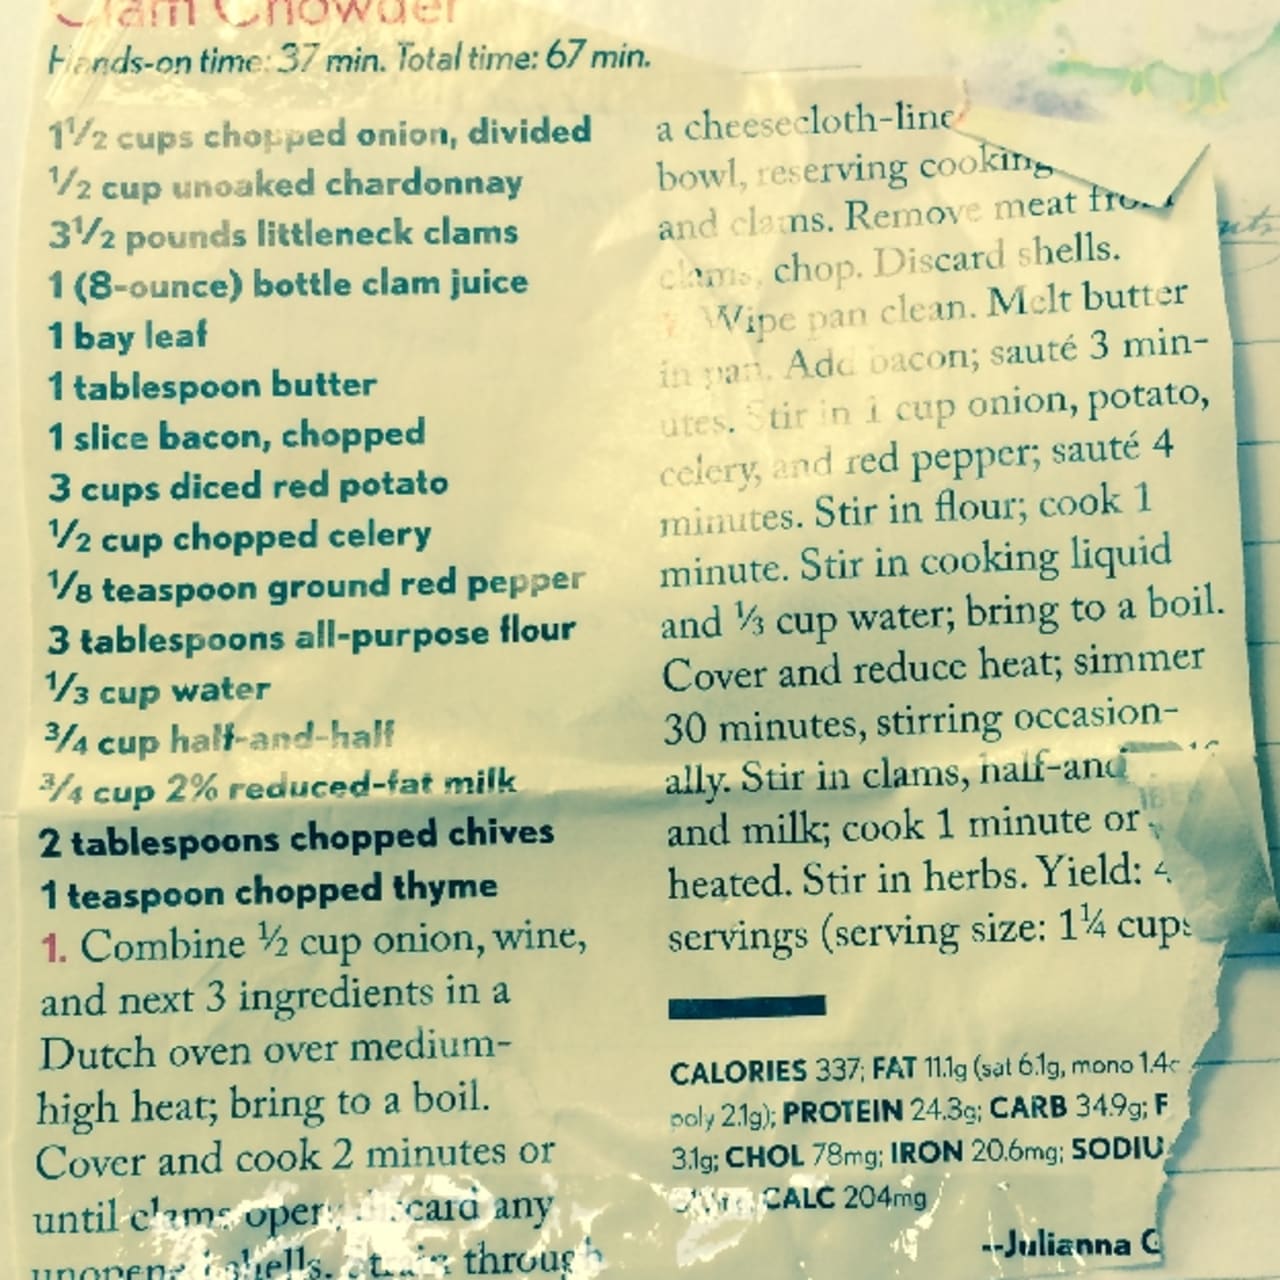 Clam Chowder
Hands-on time: 37 min. Total time: 67 min.
1½ cups chopped onion, divided
½ cup unoaked chardonnay
3½ pounds littleneck clams
1 (8-ounce) bottle clam juice
1 bay leaf
1 tablespoon butter
1 slice bacon, chopped
3 cups diced red potato
½ cup chopped celery
⅛ teaspoon ground red pepper
3 tablespoons all-purpose flour
⅓ cup water
¾ cup half-and-half
¾ cup 2% reduced-fat milk
2 tablespoons chopped chives
1 teaspoon chopped thyme
1. Combine ½ cup onion, wine,
and next 3 ingredients in a
Dutch oven over medium-
high heat; bring to a boil.
Cover and cook 2 minutes or
until clams open; discard any
unopened shells. Strain through
a cheesecloth-line
bowl, reserving cooking
and clams. Remove meat from
clams, chop. Discard shells.
Wipe pan clean. Melt butter
in pan. Add bacon; sauté 3 min-
utes. Stir in 1 cup onion, potato,
celery, and red pepper; sauté 4
minutes. Stir in flour; cook 1
minute. Stir in cooking liquid
and ⅓ cup water; bring to a boil.
Cover and reduce heat; simmer
30 minutes, stirring occasion-
ally. Stir in clams, half-and
and milk; cook 1 minute or
heated. Stir in herbs. Yield: 4
servings (serving size: 1¼ cups
CALORIES 337; FAT 11.1g (sat 6.1g, mono 1.4g
poly 2.1g); PROTEIN 24.3g; CARB 34.9g; F
3.1g; CHOL 78mg; IRON 20.6mg; SODIU
CALC 204mg
--Julianna G